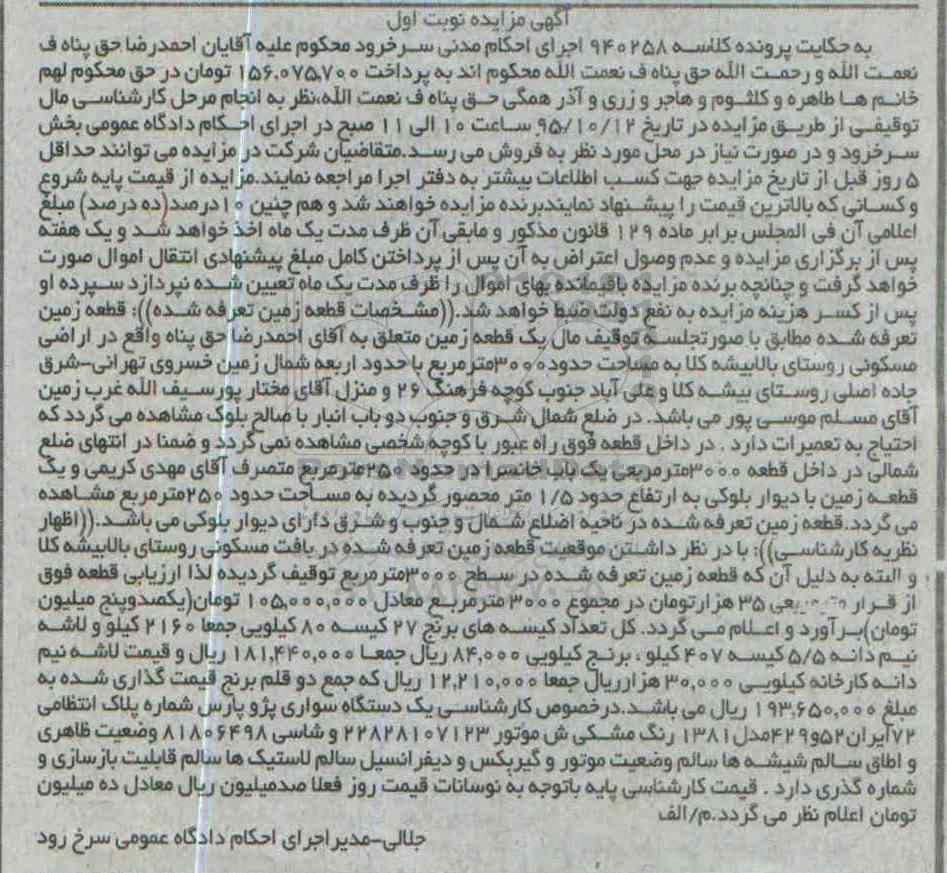 آگهی مزایده نوبت اول
به حکایت پرونده کلاسه ۹۴۰۲۵۸ اجرای احکام مدنی سرخرود محکوم علیه آقایان احمدرضا حق پناه ف
نعمت الله و رحمت الله حق پناه ف نعمت الله محکوم اند به پرداخت ۱۵۶.۰۷۵.۷۰۰ تومان در حق محکوم لهم
خانم ها طاهره و کلثوم و هاجر و زری و آذر همگی حق پناه ف نعمت الله،نظر به انجام مرحل کارشناسی مال
توقیفی از طریق مزایده در تاریخ ۹۵/۱۰/۱۲ ساعت ۱۰ الی ۱۱ صبح در اجرای احکام دادگاه عمومی بخش
سرخرود و در صورت نیاز در محل مورد نظر به فروش می رسد.متقاضیان شرکت در مزایده می توانند حداقل
۵ روز قبل از تاریخ مزایده جهت کسب اطلاعات بیشتر به دفتر اجرا مراجعه نمایند.مزایده از قیمت پایه شروع
و کسانی که بالاترین قیمت را پیشنهاد نمایندبرنده مزایده خواهند شد و هم چنین ۱۰درصد(ده درصد) مبلغ
اعلامی آن فی المجلس برابر ماده ۱۲۹ قانون مذکور و مابقی آن ظرف مدت یک ماه اخذ خواهد شد و یک هفته
پس از برگزاری مزایده و عدم وصول اعتراض به آن پس از پرداختن کامل مبلغ پیشنهادی انتقال اموال صورت
خواهد گرفت و چنانچه برنده مزایده باقیمانده بهای اموال را ظرف مدت یک ماه تعیین شده نپردازد سپرده او
پس از کسر هزینه مزایده به نفع دولت ضبط خواهد شد.((مشخصات قطعه زمین تعرفه شده)): قطعه زمین
تعرفه شده مطابق با صورتجلسه توقیف مال یک قطعه زمین متعلق به آقای احمدرضا حق پناه واقع در اراضی
مسکونی روستای بالابیشه کلا به مساحت حدود۳۰۰۰مترمربع با حدود اربعه شمال زمین خسروی تهرانی-شرق
جاده اصلی روستای بیشه کلا و علی آباد جنوب کوچه فرهنگ ۲۶ و منزل آقای مختار پورسیف الله غرب زمین
آقای مسلم موسی پور می باشد. در ضلع شمال شرق و جنوب دو باب انبار با مصالح بلوک مشاهده می گردد که
احتیاج به تعمیرات دارد . در داخل قطعه فوق راه عبور با کوچه شخصی مشاهده نمی گردد و ضمنا در انتهای ضلع
شمالی در داخل قطعه ۳۰۰۰مترمربعی یک باب خانسرا در حدود ۲۵۰مترمربع متصرف آقای مهدی کریمی و یک
قطعه زمین با دیوار بلوکی به ارتفاع حدود ۱/۵ متر محصور گردیده به مساحت حدود ۲۵۰مترمربع مشاهده
می گردد.قطعه زمین تعرفه شده در ناحیه اضلاع شمال و جنوب و شرق دارای دیوار بلوکی می باشد.((اظهار
نظریه کارشناسی)): با در نظر داشتن موقعیت قطعه زمین تعرفه شده در بافت مسکونی روستای بالابیشه کلا
و البته به دلیل آن که قطعه زمین تعرفه شده در سطح ۳۰۰۰مترمربع توقیف گردیده لذا ارزیابی قطعه فوق
از قرار مترمربعی ۳۵ هزارتومان در مجموع ۳۰۰۰ مترمربع معادل ۱۰۵.۰۰۰.۰۰۰ تومان(یکصدوپنج میلیون
تومان)برآورد و اعلام می گردد. کل تعداد کیسه های برنج ۲۷ کیسه ۸۰ کیلویی جمعا ۲۱۶۰ کیلو و لاشه
نیم دانه ۵/۵ کیسه ۴۰۷ کیلو ، برنج کیلویی ۸۴,۰۰۰ ریال جمعا ۱۸۱,۴۴۰,۰۰۰ ریال و قیمت لاشه نیم
دانه کارخانه کیلویی ۳۰,۰۰۰ هزارریال جمعا ۱۲,۲۱۰,۰۰۰ ریال که جمع دو قلم برنج قیمت گذاری شده به
مبلغ ۱۹۳,۶۵۰,۰۰۰ ریال می باشد.درخصوص کارشناسی یک دستگاه سواری پژو پارس شماره پلاک انتظامی
۷۲ایران۵۲و۴۲۹مدل۱۳۸۱ رنگ مشکی ش موتور ۲۲۸۲۸۱۰۷۱۲۳ و شاسی ۸۱۸۰۶۴۹۸ وضعیت ظاهری
و اطاق سالم شیشه ها سالم وضعیت موتور و گیربکس و دیفرانسیل سالم لاستیک ها سالم قابلیت بازسازی و
شماره گذری دارد . قیمت کارشناسی پایه باتوجه به نوسانات قیمت روز فعلا صدمیلیون ریال معادل ده میلیون
تومان اعلام نظر می گردد.م/الف
جلالی-مدیراجرای احکام دادگاه عمومی سرخ رود